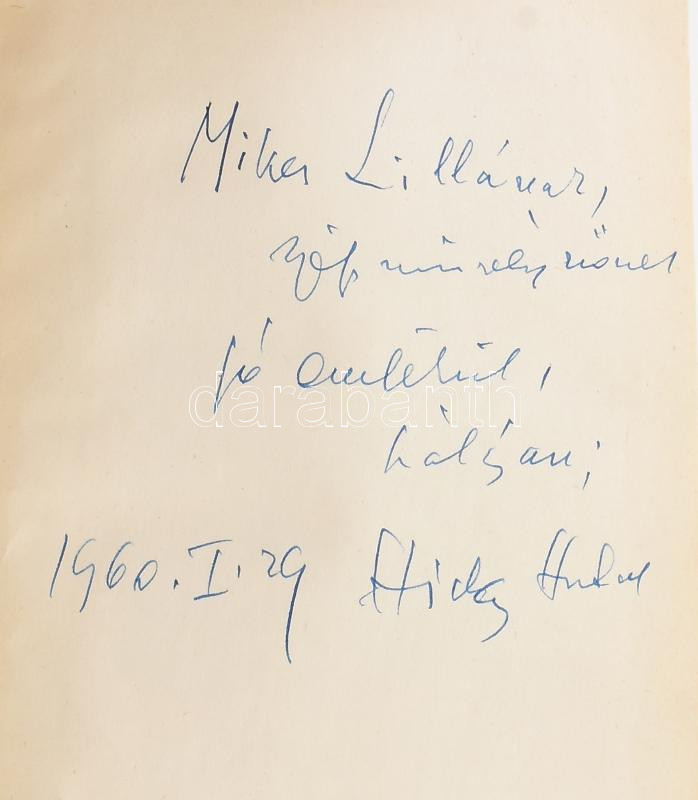 Mikes Lillának,
szép művésznőnek
jó emlékül,
hálásan:
1960. I. 29 Hidas Antal
darabanth